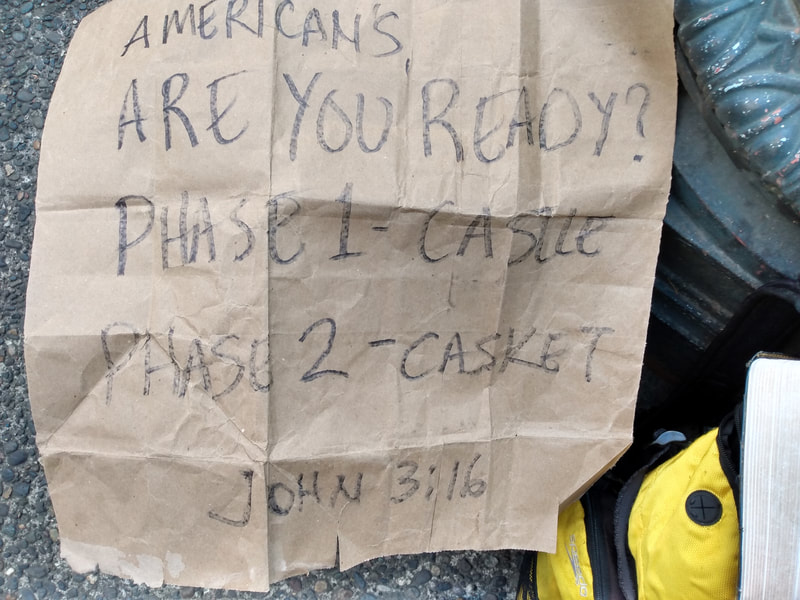 AMERICAN'S
ARE YOU READY?
PHASE 1- CASTLE
PHASE 2-CASKET
JOHN 3:16